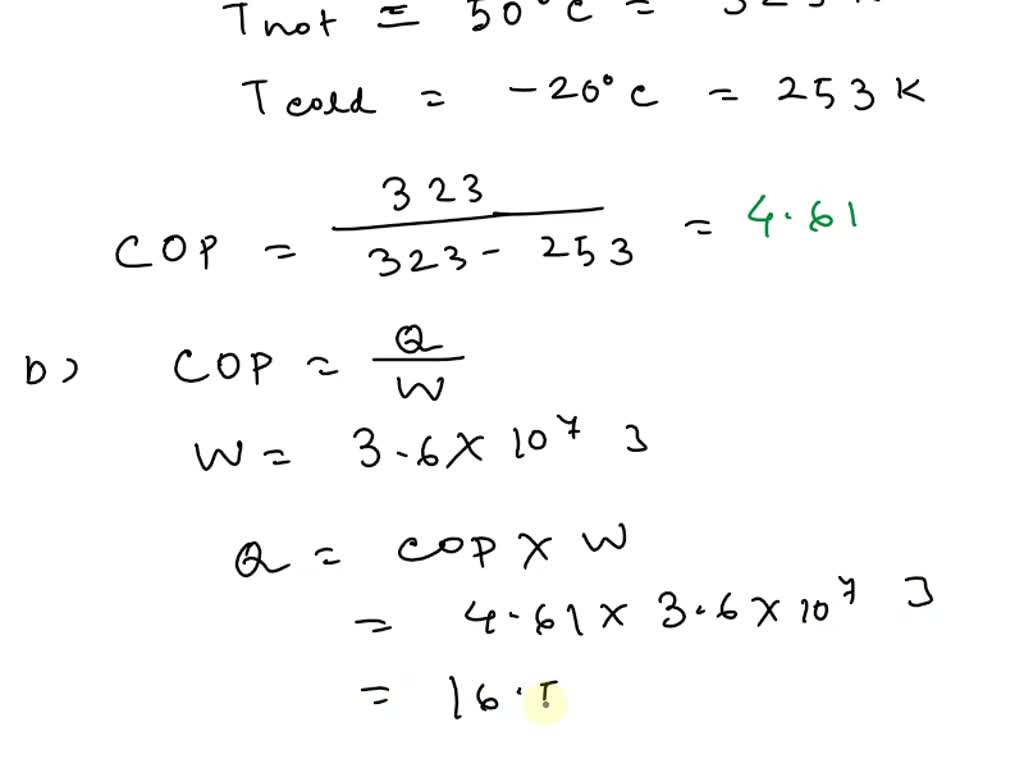 T hot = 50°C = 323 K
T cold = -20°C = 253 K
323
COP = ——— = 4.61
323 - 253
b) COP = Q/W
W = 3.6 × 10^7 J
Q = COP × W
= 4.61 × 3.6 × 10^7 J
= 16.5